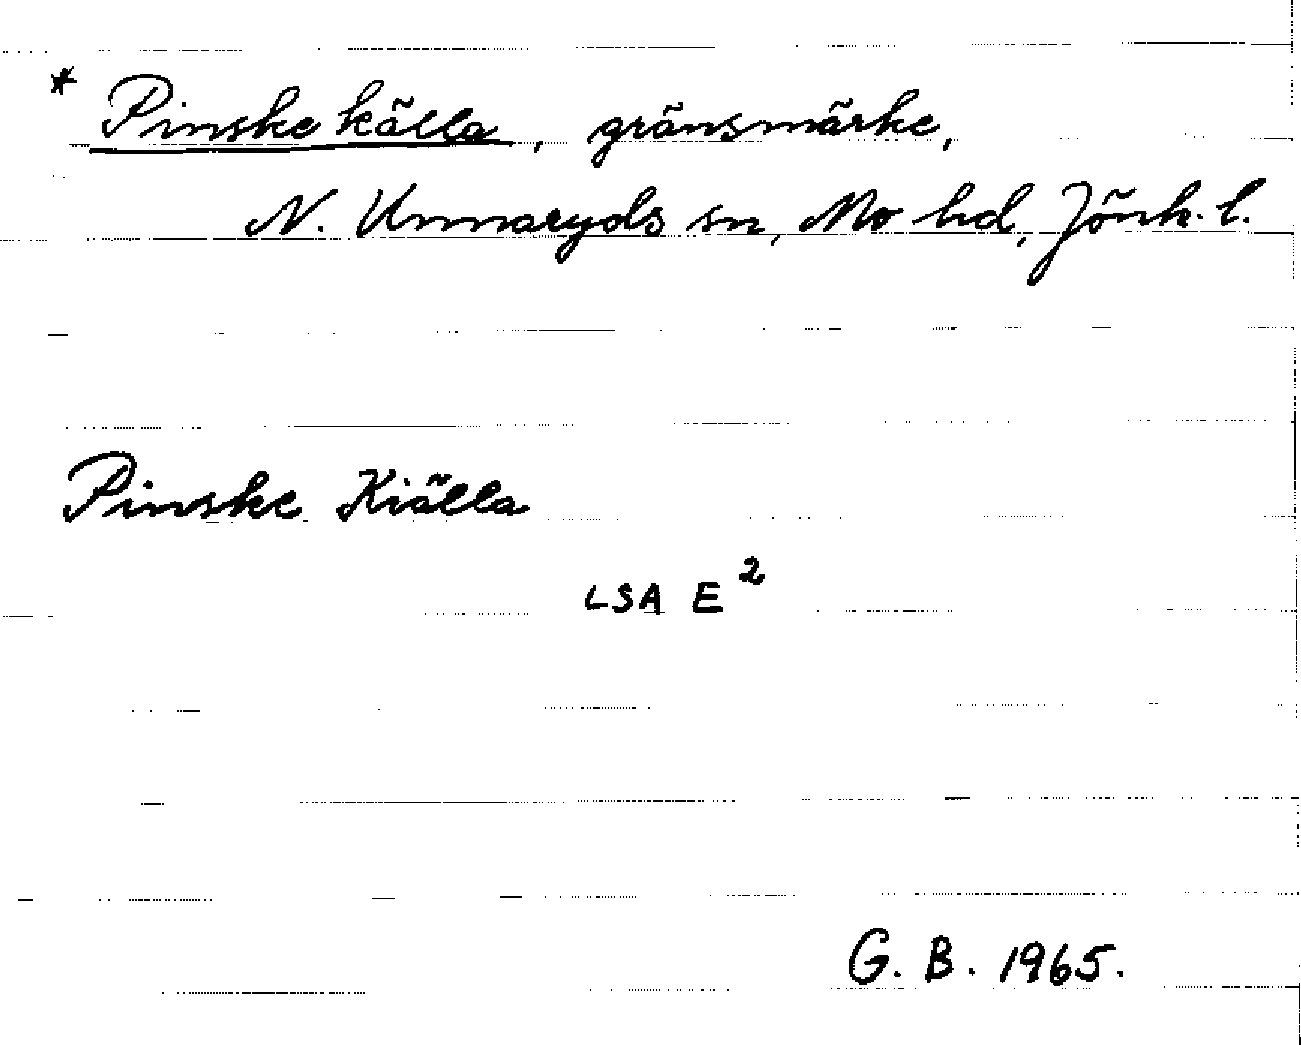 * Pinske källa, gränsmärke,
N. Unnaryds sn, Mo hd, Jönk. l.
Pinske Kiälla
LSA E²
G. B. 1965.